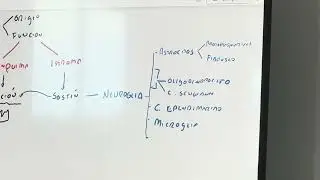 Origio
Función
Estroma
Sostén
Neuroglia
Astrocitos
Protoplasmático
Fibroso
Oligodendrocito
C. Schwann
C. Ependimario
Microglia